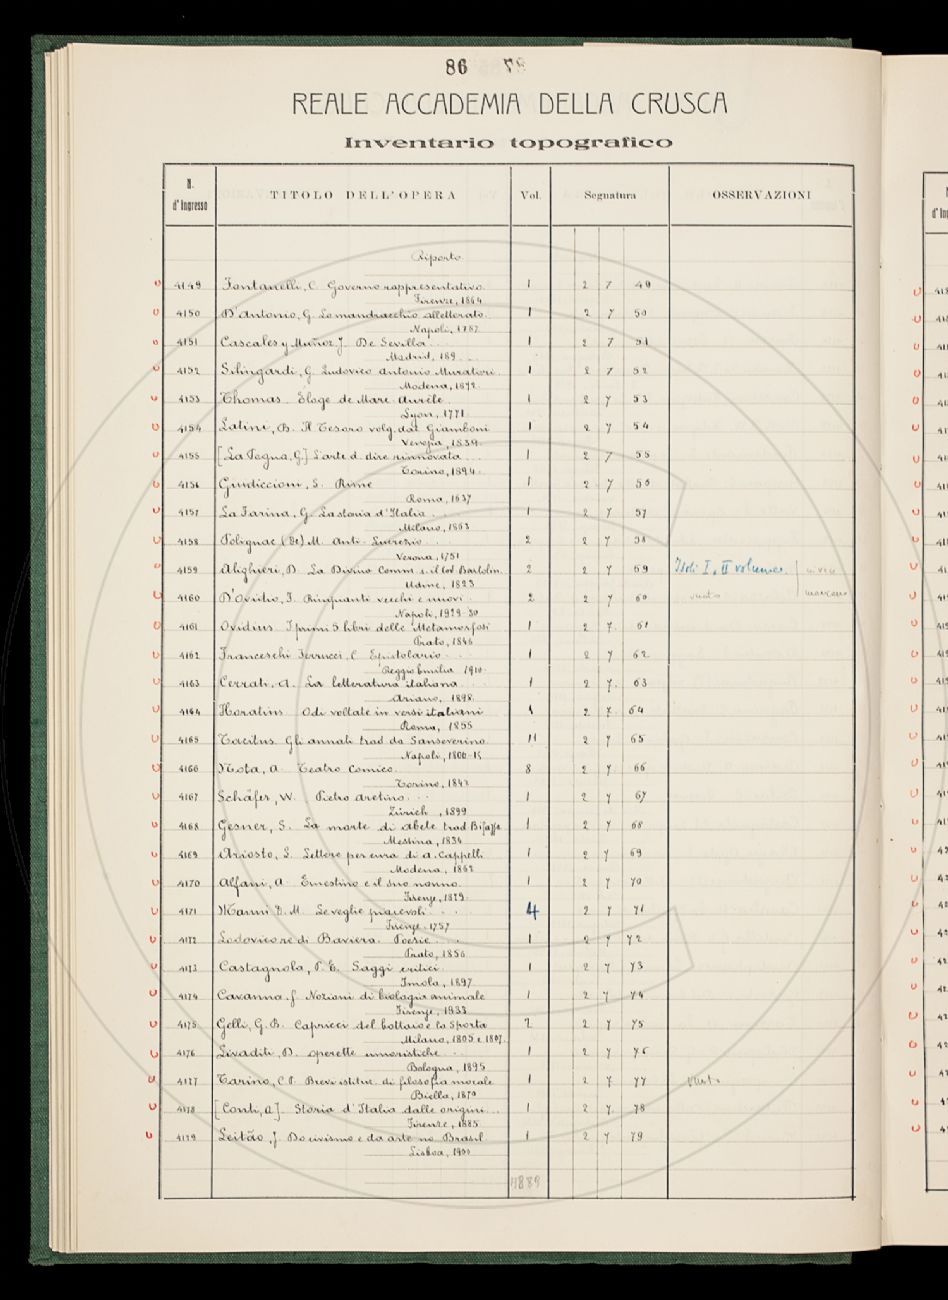 86 87
REALE ACCADEMIA DELLA CRUSCA
Inventario topografico
N. d'Ingresso TITOLO DELL'OPERA Vol. Segnatura OSSERVAZIONI
Riporto
4149 Fontanelli, C. Governo rappresentativo 1 2 7 49
Firenze, 1864
4150 D'Antonio, G. Lo mandracchio alletterato. 1 2 7 50
Napoli, 1787
4151 Cascales y Muñoz J. De Sevilla... 1 2 7 51
Madrid, 189...
4152 Silingardi, G. Ludovico Antonio Muratori. 1 2 7 52
Modena, 1872.
4153 Thomas. Éloge de Marc Aurèle. 1 2 7 53
Lyon, 1771.
4154 Latini, B. Il Tesoro volg. dal Giamboni 1 2 7 54
Venezia, 1839.
4155 [La Pagna, G.] L'arte d. dire rinnovata... 1 2 7 55
Torino, 1894.
4156 Guidiccioni, L. Rime 1 2 7 56
Roma, 1637
4157 La Farina, G. La storia d'Italia... 1 2 7 57
Milano, 1863
4158 Polignac (De) M. Anti-Lucrezio... 2 2 7 58
Verona, 1751
4159 Alighieri, D. La Divina Comm. s. il cod. Bartolin. 2 2 7 59 I
Udine, 1823
4160 D'Ovidio, F. Rimpianti vecchi e nuovi. 2 2 7 60 vuoto
Napoli, 1929-30
4161 Ovidius. I primi 5 libri delle Metamorfosi 1 2 7. 61
Prato, 1846
4162 Franceschi Ferrucci, C. Epistolario... 1 2 7 62
Reggio Emilia 1910.
4163 Cerrati, A. La letteratura italiana 1 2 7. 63
Ariano, 1898.
4164 Horatius Odi voltate in versi italiani 1 2 7. 64
Roma, 1855
4165 Tacitus. Gli annali trad. da Sanseverino 11 2 7 65
Napoli, 1806-15
4166 Nota, A. Teatro comico. 8 2 7 66
Torino, 1842
4167 Schäfer, W. Pietro Aretino... 1 2 7 67
Zürich, 1899
4168 Gesner, S. La morte di Abele trad. 1 2 7 68
Messina, 1834
4169 Ariosto, L. Lettere per cura di A. Cappelli 1 2 7 69
Modena, 1862
4170 Alfani, A. Ernestino e il suo nonno. 1 2 7 70
Firenze, 1879.
4171 Manni D. M. Le veglie piacevoli... 4 2 7 71
Firenze, 1757
4172 Lodovico re di Baviera. Poesie... 1 2 7 72
Prato, 1856
4173 Castagnola, P. E. Saggi critici. 1 2 7 73
Imola, 1897
4174 Cavanna, f. Nozioni di biologia animale 1 2 7 74
Firenze, 1883
4175 Gelli, G. B. Capricci del bottaio e la Sporta 2 2 7 75
Milano, 1805 e 1807.
4176 Livaditi, D. Operette umoristiche... 1 2 7 76
Bologna, 1895
4177 Tarino, C. P. Brevi istituz. di filosofia morale 1 2 7 77 vuoto
Biella, 1870
4178 [Conti, A]. Storia d'Italia dalle origini... 1 2 7. 78
Firenze, 1885
4179 Leitão, J. Do civismo e da arte no Brasil 1 2 7 79
Lisboa, 1900
4889